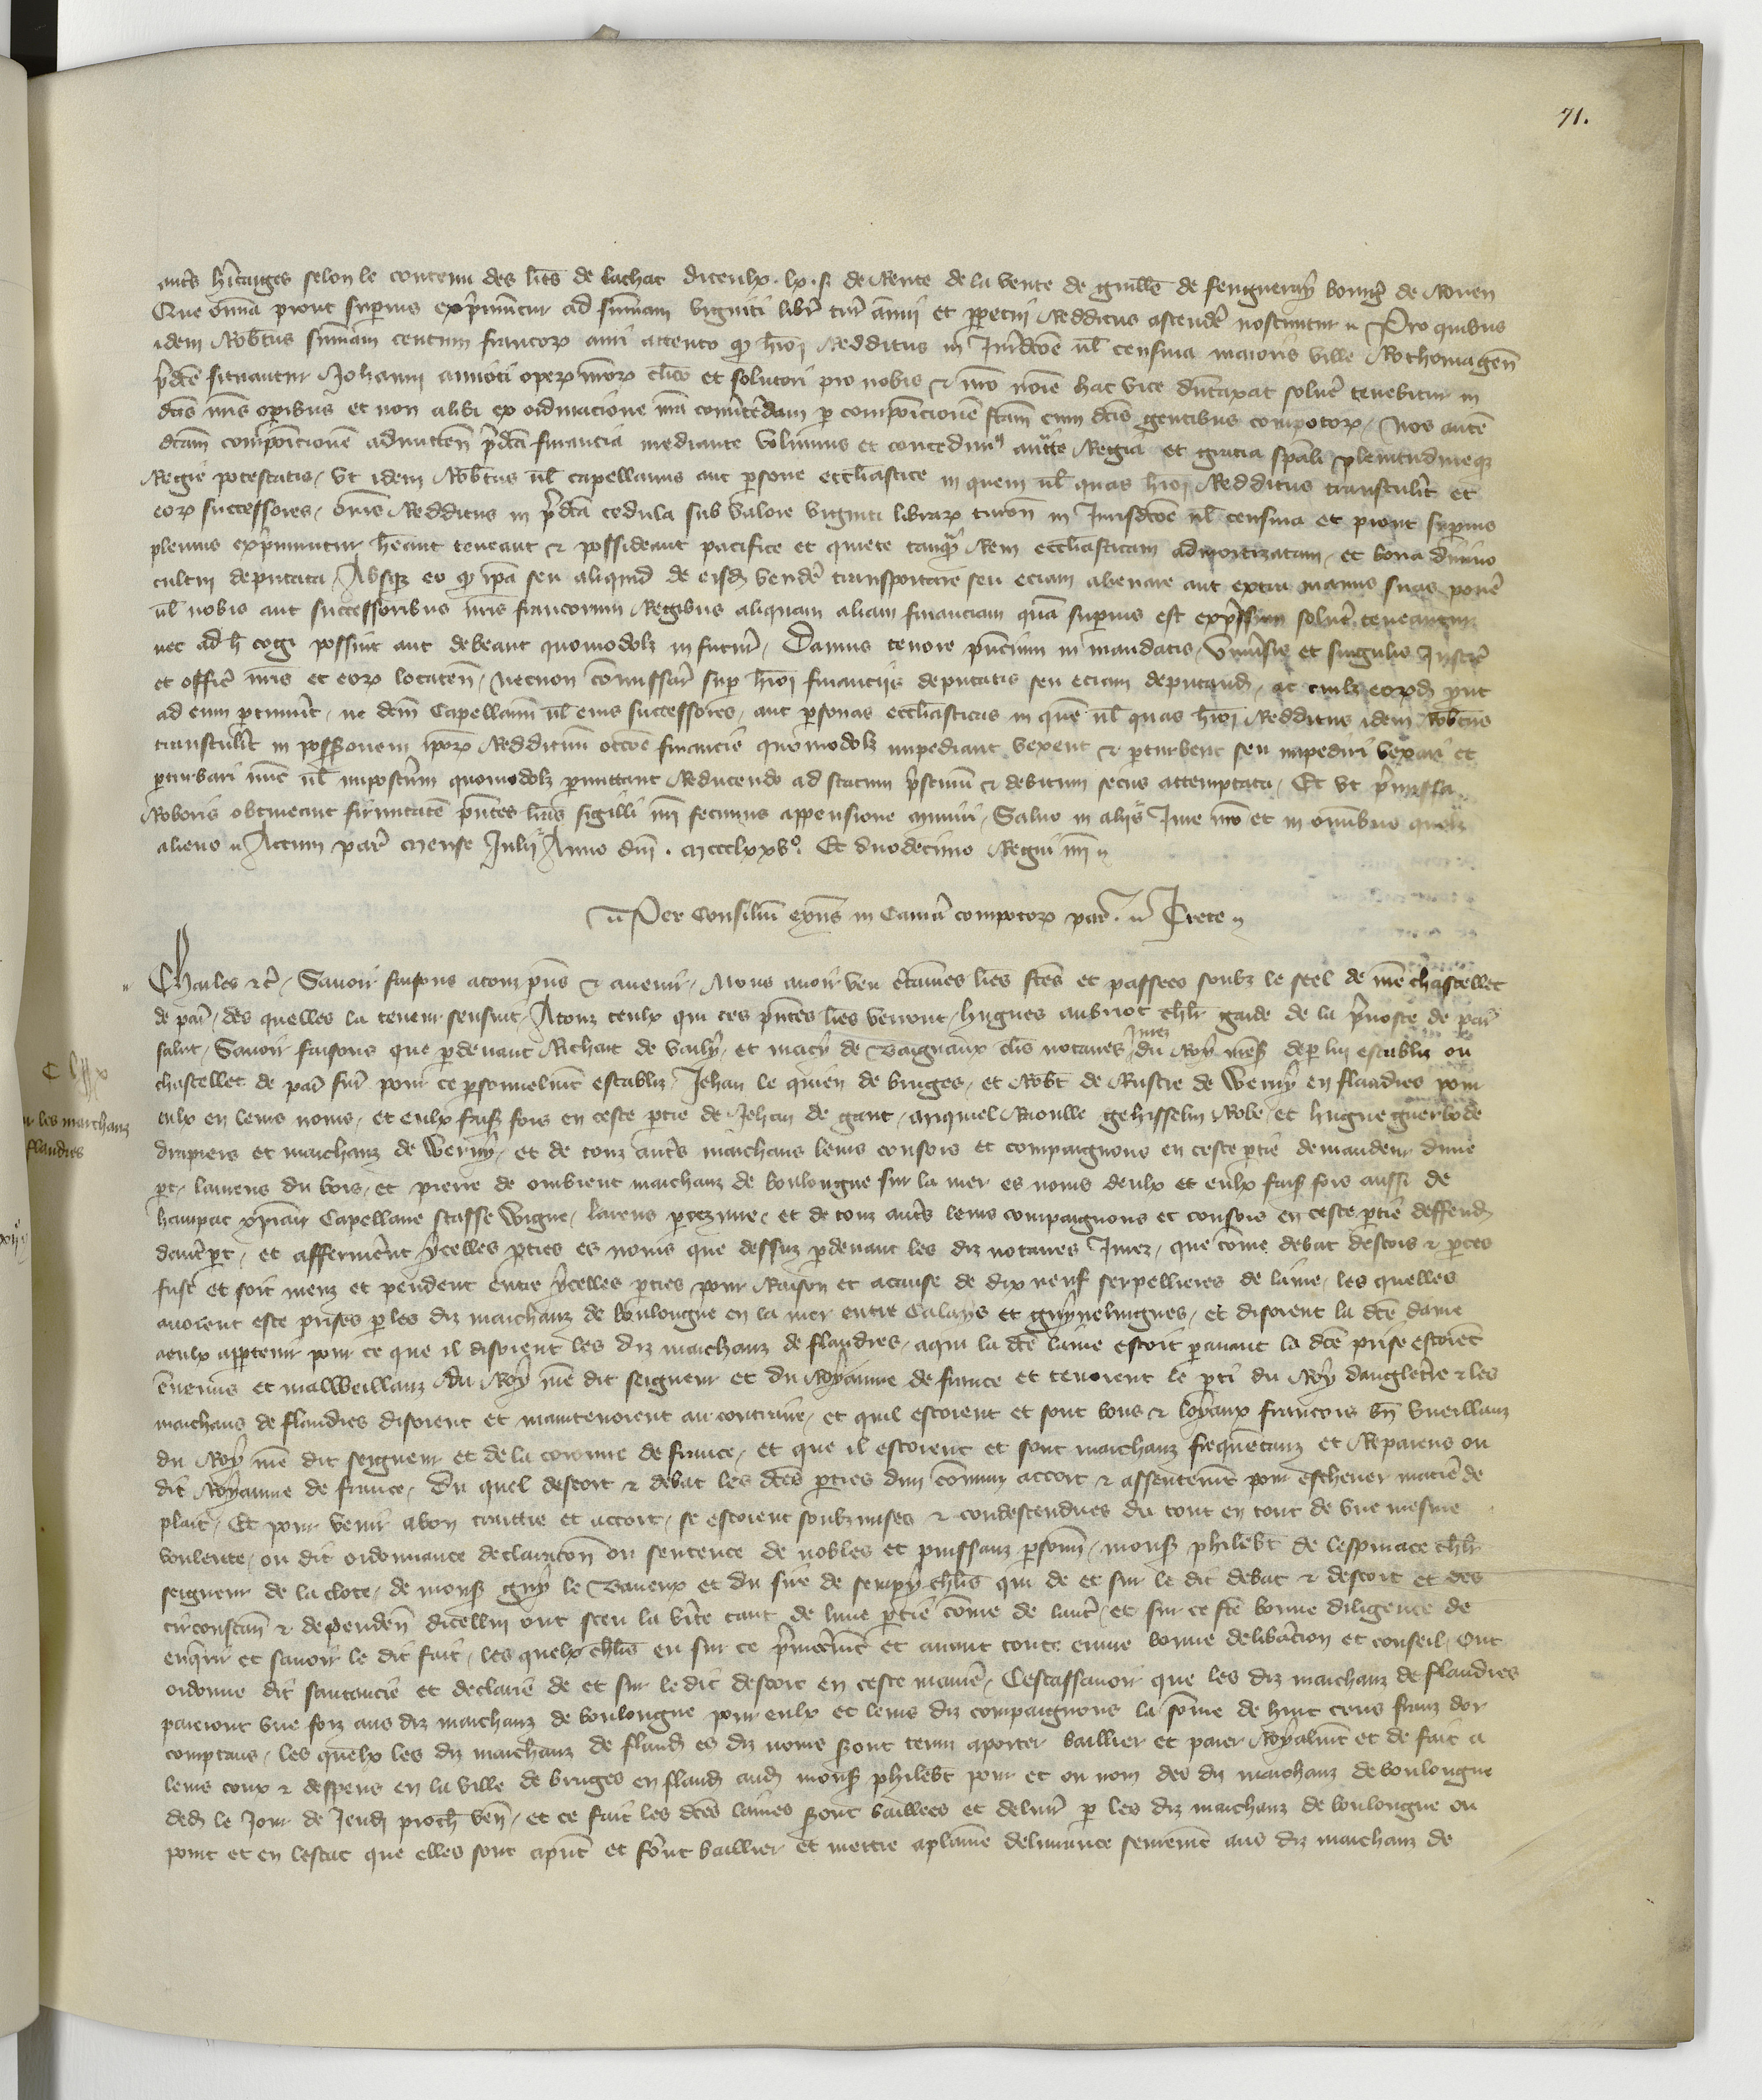 71.
autrs hitaiges selon le contenu des lres de lachat diceulx . lx . s de Rente de la vente de guille de fengueray bourgs de Rouen
Que omnia prout superius exprimuntur ad summam viginti libr tur annui et perpetui Redditus ascendere noscuntur Pro quibus
idem Robtus summam centum francor auri attento q hmoi Redditus in Jurisdcoe ul censiva maioris ville Rothomagen
pdce situantur Johanni amioti operum nror clico et solutori pro nobis & nro noie hac vice dumtaxat solvere tenebitur in
dcis nris operibus et non alibi ex ordinacione nra convertendam per compoicione fcam cum dcis gentibus compotor / Nos aute
dcam compoicione admitten pdca financia mediante volumus et concedimus auctte Regia et gratia spali plenitudineq
Regie potestatis / ut idem Robtus ul capellanus aut persone ecclastice in quem ul quas hmoi Redditus transtulit et
eor successores / omes Redditus in pdca cedula sub valore viginti librar turon in Jurisdcoe ul censiva et prout superius
plenius exprimuntur heant teneant & possideant pacifice et quiete tanq Rem ecclasticam admortizatam / et bona divino
cultui deputata / Absq eo q ipa seu aliquid de eisd vendere transportare seu eciam alienare aut extra manus suas ponere
ul nobis aut successoribus nris francorum Regibus aliquam aliam financiam qua superius est expressum solvere teneantur
nec ad h cogi possint aut debeant quomodolz in futur / Damus tenore pncium in mandatis / Universis et singulis Justic
et offic nris et eor locaten / necnon comissar sup hmoi financiis deputatis seu eciam deputand / ac cuilz eord put
ad eum ptinuit / ne dcm Capellanum ul eius successores / aut personas ecclasticas in que ul quas hmoi Redditus idem Robtus
transtulit in possessionem ipor Redditum occoe financie quomodolz impediant vexent & pturbent seu impediri vexari et
pturbari nunc ul imposterum quomodolz pmittant Reducendo ad statum pstinum & debitum secus attemptata / Et ut pmissa
Roboris obtineant firmitate pntes lras sigilli nri fecimus appensione muniri / Salvo in aliis Jure nro et in omibus quolz
alieno Actum par mense Julii Anno dni . mccclxxvo . Et duodecimo Regni nri
Per Consiliu exns in Cama compotor par . Crete
Charles etc / Savoir faisons a touz pns & avenir / Nous avoir veu ctaines lres fces et passees soubz le seel de nre chastellet
de par / des quelles la teneur sensuit / A touz ceulx qui ces pntes lres verront / hugues aubriot chlr garde de la pvoste de par
salut / Savoir faisons que pdevant Richart de vaily / et macy de Baigneaux clers notaires Jurez du Roy nres depar lui establiz ou
chastellet de par furent pour ce psonnelmt establiz / Jehan le quien de bruges / et Robt de Rustre de Wervy en flandres pour
eulx en leurs noms / et eulx fais fors en ceste ptie de Jehan de gant / anquel Rioulle gehisselin Robe / et hugue guerbode
drapiers et marchanz de Wervy / et de touz autrs marchans leurs consors et compaignons en ceste ptie demandeur dune
pt / laurens du bois / et pierre de ombrent marchanz de bouloingne sur la mer es noms deulx et eulx fais fors aussi de
hanpac xpian Capellane stasse Wigne / larens pcezune / et de touz autrs leurs compaignons et consors en ceste ptie deffend
dautrept / et affermerent ycelles pties es noms que dessuz pdevant les diz notaires Jurez / que come debat descors & pces
fust et soit meuz et pendent entre ycelles pties pour Raison et acause de dix neuf serpellieres de laine / les quelles
avoient este prises p les diz marchanz de bouloingne en la mer entre Calays et gravelingues / et disoient la dce laine
aeulx apptenir pour ce que il disoient les diz marchanz de flandres / aqui la dce laine estoit pavant la dce prise estoiet
ennemis et malweillanz du Roy nre dit seigneur et du Royaume de france et tenoient le pti du Roy dangleterre & les
marchans de flandres disoient et maintenoient au contraire / et quil estoient et sont bons & loyaux francois bn vueillanz
du Roy nre dit seigneur et de la couronne de france / et que il estoient et sont marchanz frequetanz et Repairens ou
dit Royaume de france / Du quel descort & debat les dces pties dun comun accort & assentemt pour eschever matiere de
plait / Et pour venir a bon traittie et accort / se estoient soubzmises & condescendues du tout en tout de une mesme
voulente / ou dit ordonnance declaracion ou sentence de nobles et puissanz psonn / mons philebt de lespinace chlr
seigneur de la clote / de mons guy le Baveux et du sire de sempy chlrs qui de et sur le dit debat & descort et des
circonstan & dependen dicellui ont sceu la verite tant de lune ptie come de lautr / et sur ce fce bonne diligence de
enqrir et savoir le dit fait / les quelx chlrs eu sur ce pmieremt et avant toute euvre bonne delibacion et conseil / Ont
ordonne dit sentencie et declaire de et sur le dit descort en ceste maniere / Cestassavoir que les diz marchanz de flandres
paieront une foiz aus diz marchanz de bouloingne pour eulx et leurs diz compaignons la some de huit cens franz dor
comptans / les quelx les diz marchanz de fland es diz noms seront tenu aporter baillier et paier Royalmt et de fait a
leurs coux & despens en la ville de bruges en fland aud mons philebt pour et ou nom des diz marchanz de bouloingne
ded le Jour de Jeud proch ven / et ce fait les dces laines seront baillees et delivr p les diz marchanz de bouloingne ou
point et en lestat que elles sont a pnt et feront baillier et mettre aplaine delivrance seurement aus diz marchanz de
r les marchanz
flandres